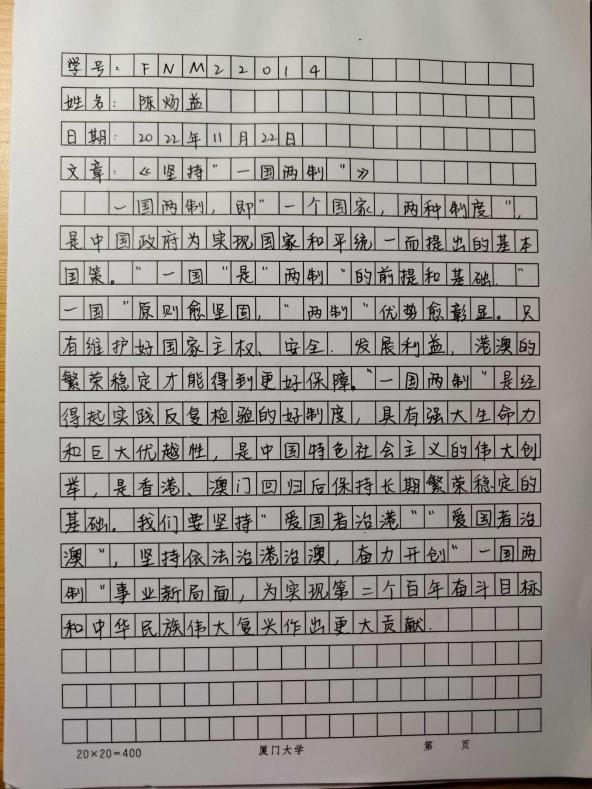 学号：FNM22014
姓名：陈炀益
日期：2022年11月22日
文章：《坚持“一国两制”》
一国两制，即“一个国家，两种制度”，
是中国政府为实现国家和平统一而提出的基本
国策。“一国”是“两制”的前提和基础.“
一国”原则愈坚固，“两制”优势愈彰显。只
有维护好国家主权、安全.发展利益，港澳的
繁荣稳定才能得到更好保障。“一国两制”是经
得起实践反复检验的好制度，具有强大生命力
和巨大优越性，是中国特色社会主义的伟大创
举，是香港、澳门回归后保持长期繁荣稳定的
基础。我们要坚持“爱国者治港”“爱国者治
澳”，坚持依法治港治澳，奋力开创“一国两
制”事业新局面，为实现第二个百年奋斗目标
和中华民族伟大复兴作出更大贡献.
20×20=400 厦门大学 第 页